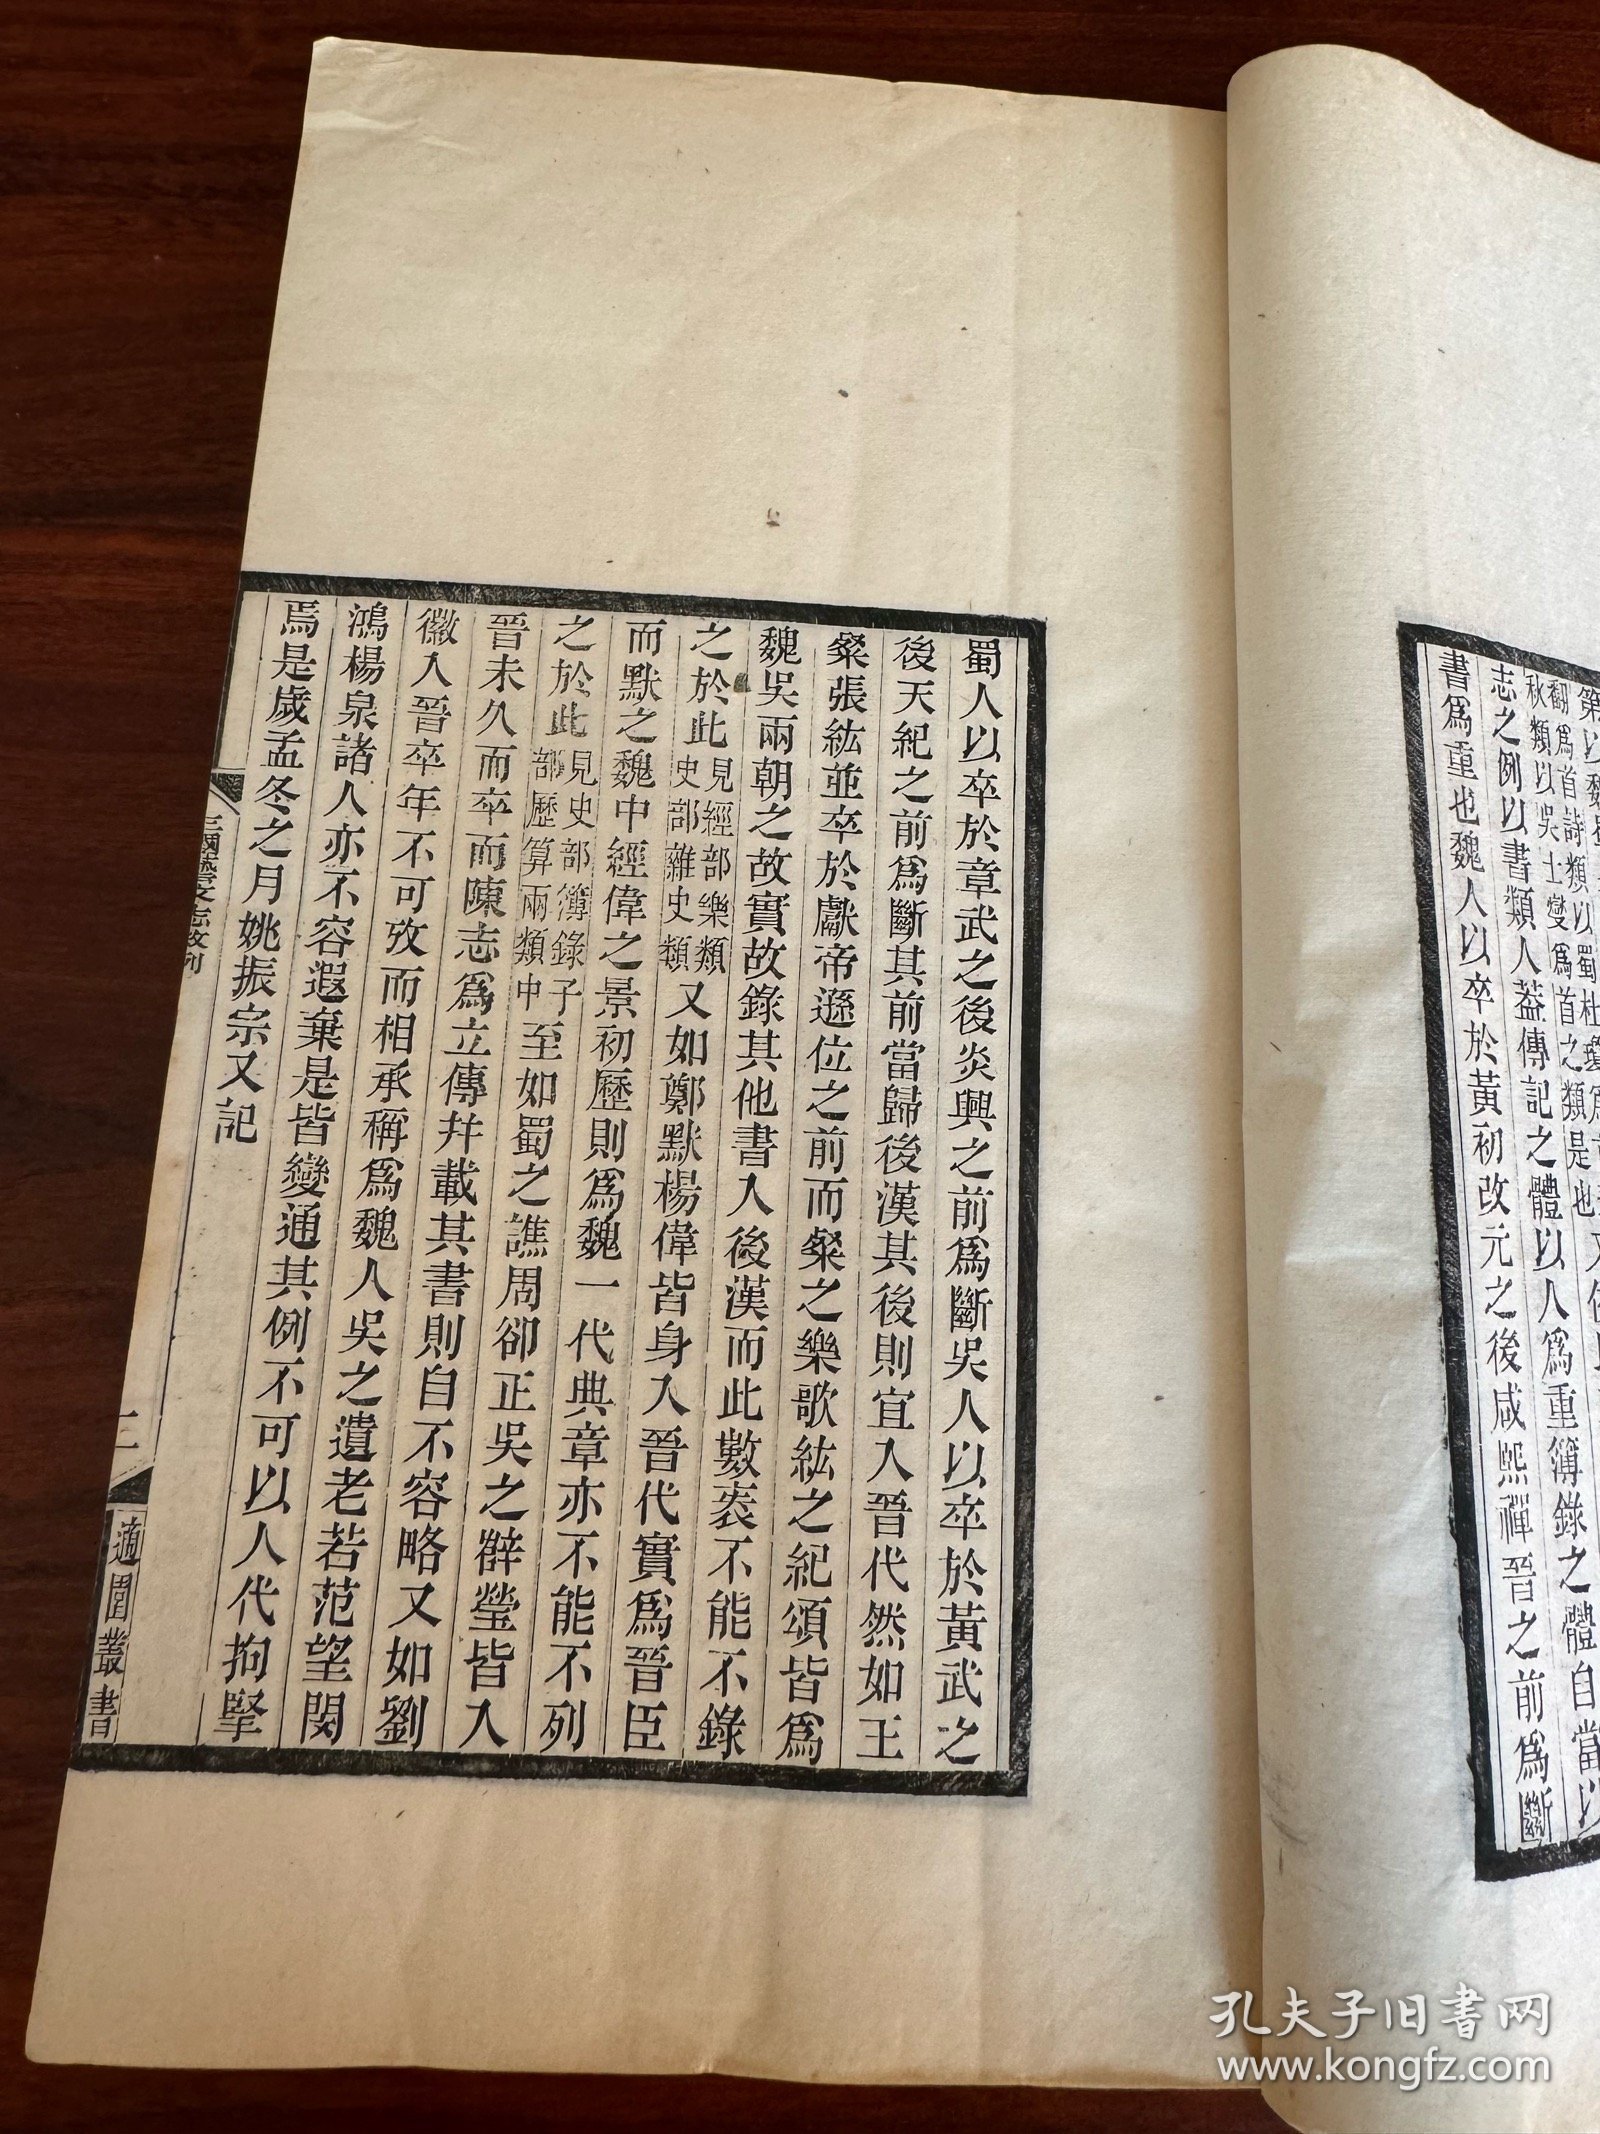 第以魏蜀
翻爲首詩類以蜀杜瓊爲
秋類以吳士燮爲首之類是也
志之例以書類人葢傳記之體以人爲重簿錄之體自當以
書爲重也魏人以卒於黃初改元之後咸熙禪晉之前爲斷
蜀人以卒於章武之後炎興之前爲斷吳人以卒於黃武之
後天紀之前爲斷其前當歸後漢其後則宜入晉代然如王
粲張紘並卒於獻帝遜位之前而粲之樂歌紘之紀頌皆爲
魏吳兩朝之故實故錄其他書入後漢而此數袠不能不錄
之於此見經部樂類
史部雜史類又如鄭默楊偉皆身入晉代實爲晉臣
而默之魏中經偉之景初歷則爲魏一代典章亦不能不列
之於此見史部簿錄子
部歷算兩類中至如蜀之譙周郤正吳之薛瑩皆入
晉未久而卒而陳志爲立傳幷載其書則自不容略又如劉
徽入晉卒年不可攷而相承稱爲魏人吳之遺老若范望閔
鴻楊泉諸人亦不容遐棄是皆變通其例不可以人代拘墼
焉是歲孟冬之月姚振宗又記
三國藝文志敘列
三
適園叢書
孔夫子旧书网
www.kongfz.com